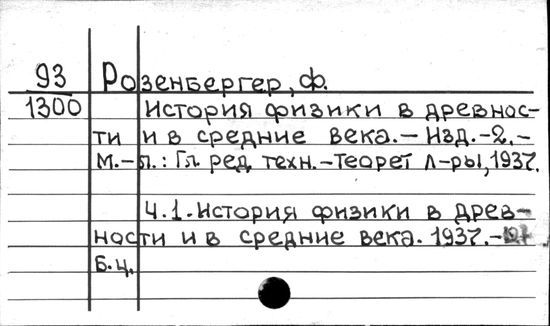 93 Розенбергер, Ф.
1300 История физики в древнос-
ти и в средние века.- Изд.-2.-
М.-Л.: Гл ред техн.-Теорет л-ры, 1937.
Ч.1.-История физики в древ-
ности и в средние века. 1937.-
Б.ц.